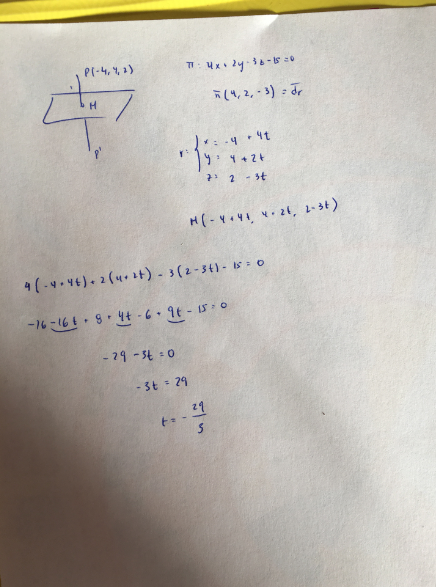 P(-4, 4, 2)
H
P'
π: 4x + 2y - 3z - 15 = 0
n̄(4, 2, -3) = d̄r
r: { x = -4 + 4t
y = 4 + 2t
z = 2 - 3t
H(-4+4t, 4+2t, 2-3t)
4(-4+4t) + 2(4+2t) - 3(2-3t) - 15 = 0
-16 -16t + 8 + 4t - 6 + 9t - 15 = 0
-29 - 3t = 0
-3t = 29
t = - 29/3